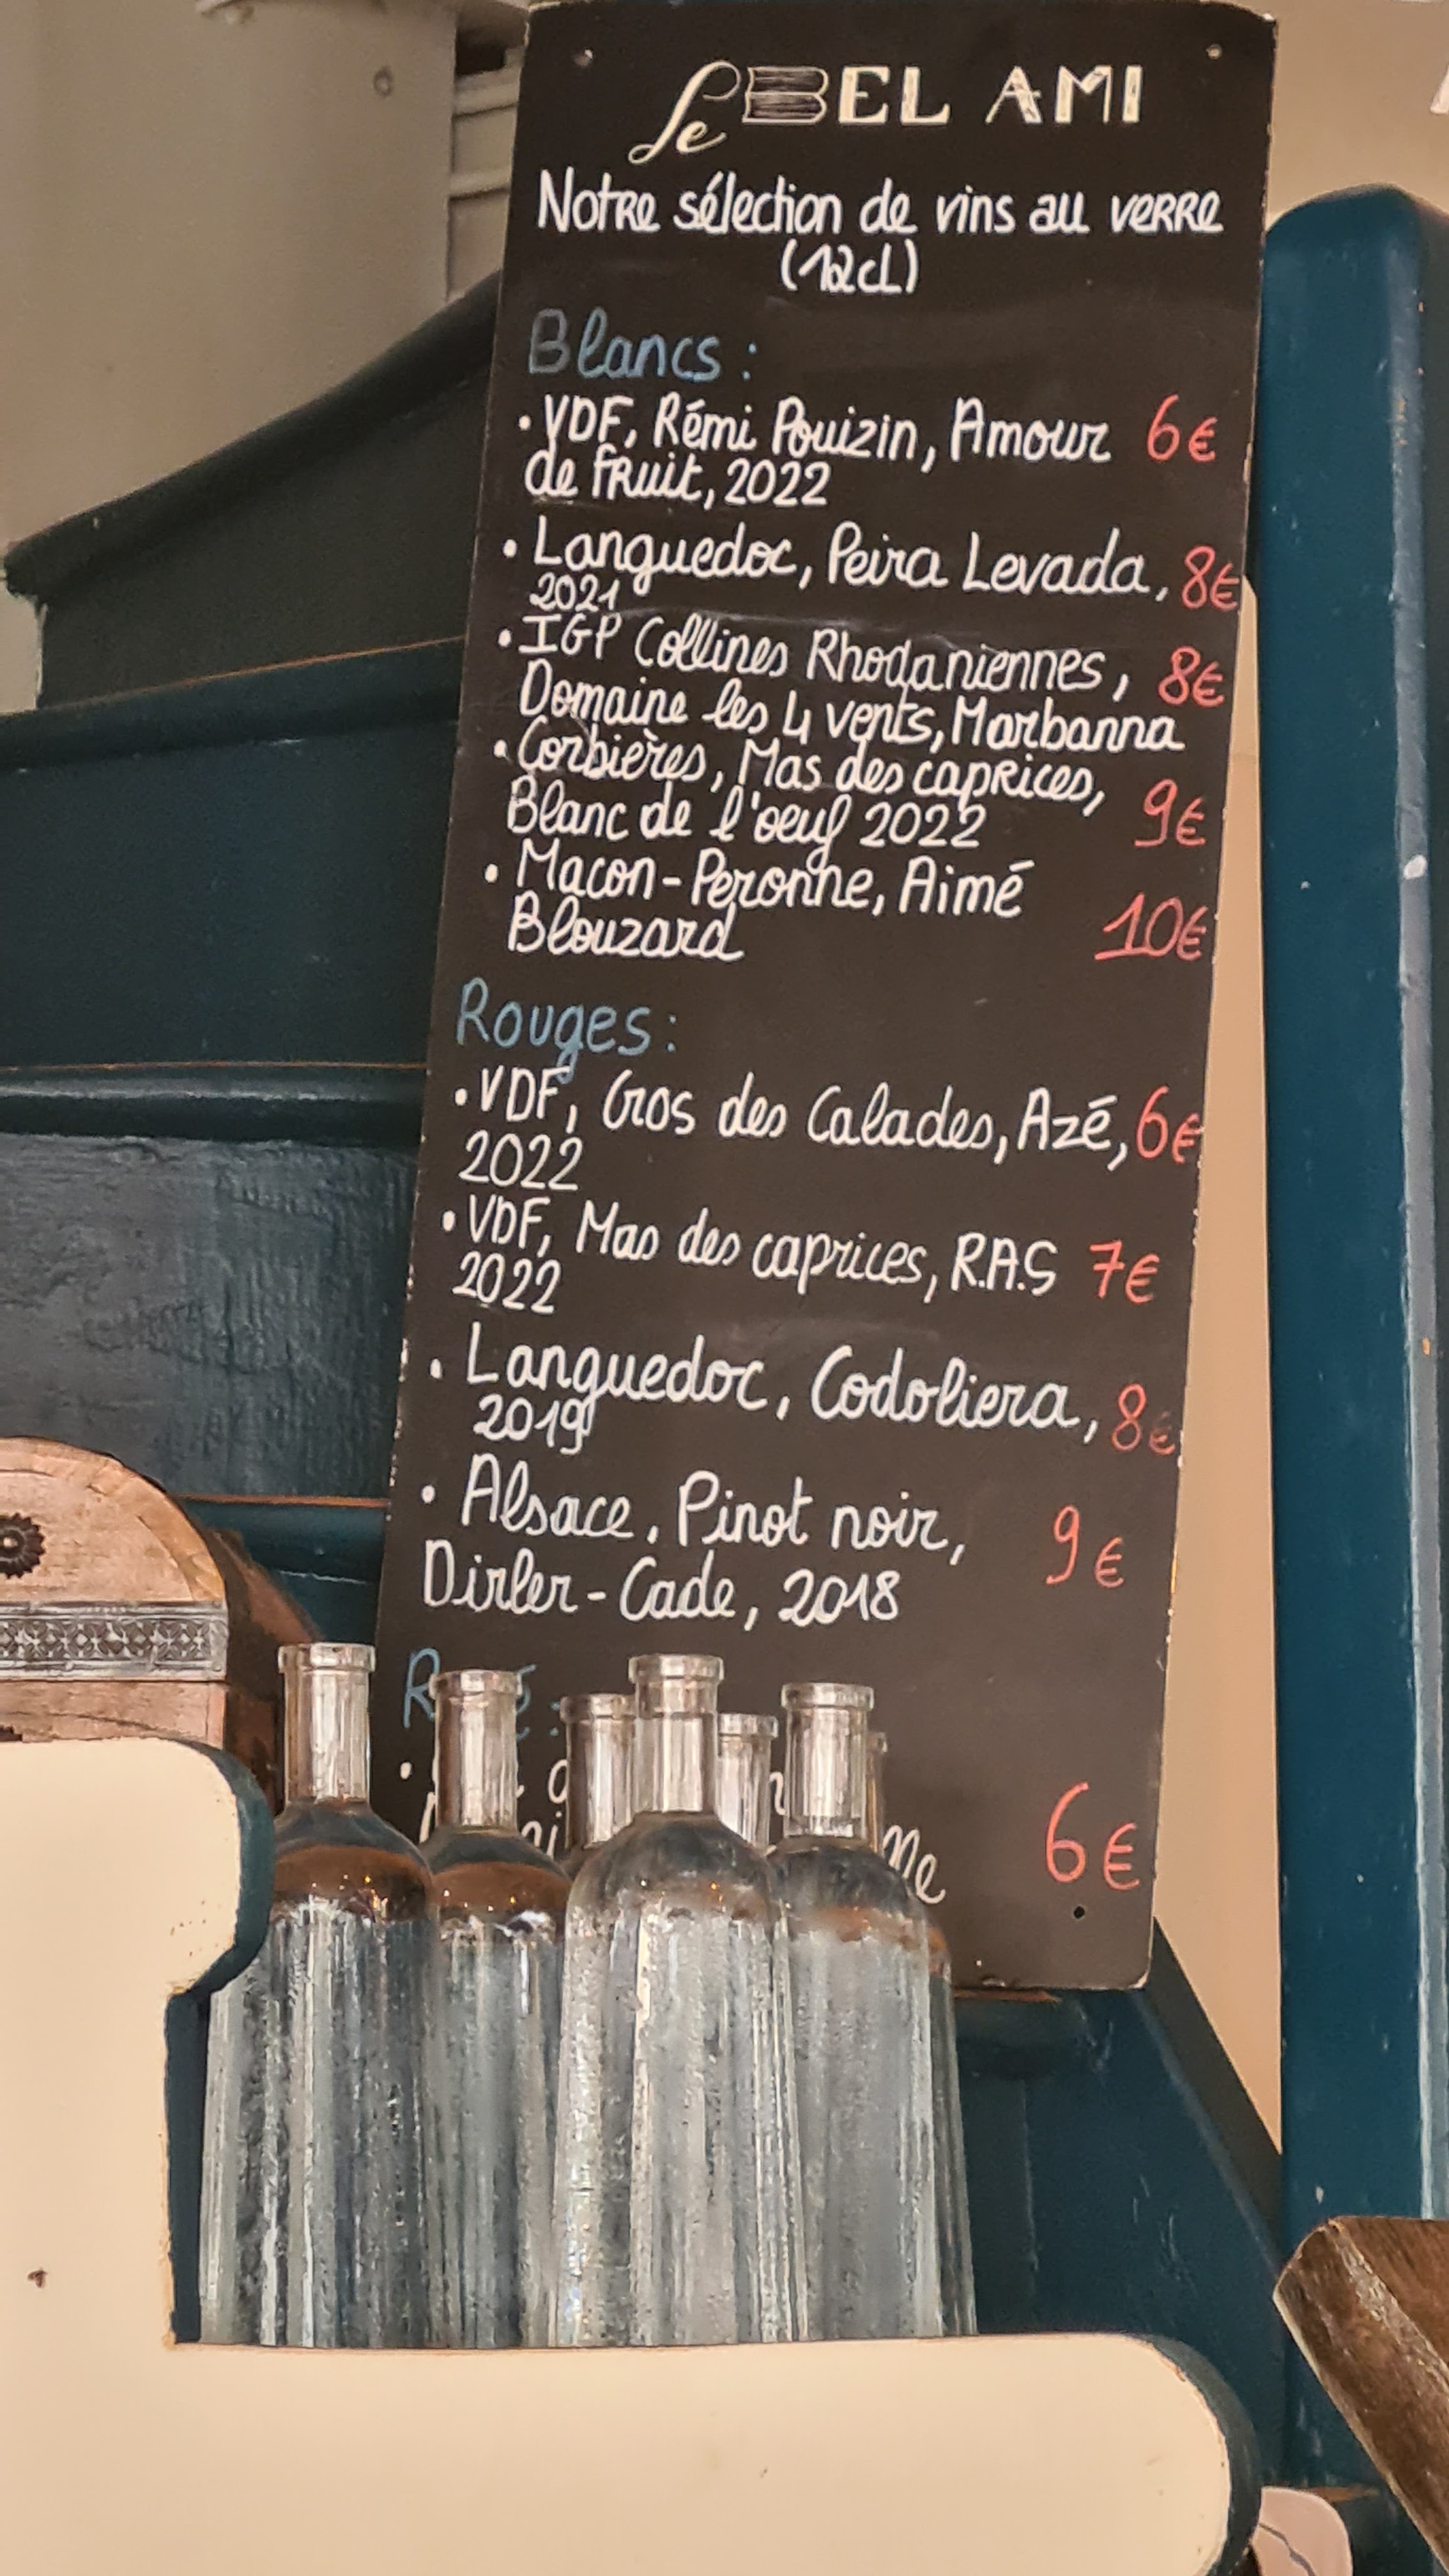 Le BEL AMI
Notre sélection de vins au verre
(12cL)
Blancs :
• VDF, Rémi Pouizin, Amour 6€
de fruit, 2022
• Languedoc, Peira Levada, 8€
2021
• IGP Collines Rhodaniennes, 8€
Domaine les 4 vents, Marbanna
• Corbières, Mas des caprices,
Blanc de l'oeuf 2022 9€
• Macon-Peronne, Aimé
Blouzard 10€
Rouges :
• VDF, Gros des Calades, Azé, 6€
2022
• VDF, Mas des caprices, R.A.S 7€
2022
• Languedoc, Codoliera, 8€
2019
• Alsace, Pinot noir, 9€
Dirler-Cade, 2018
6€